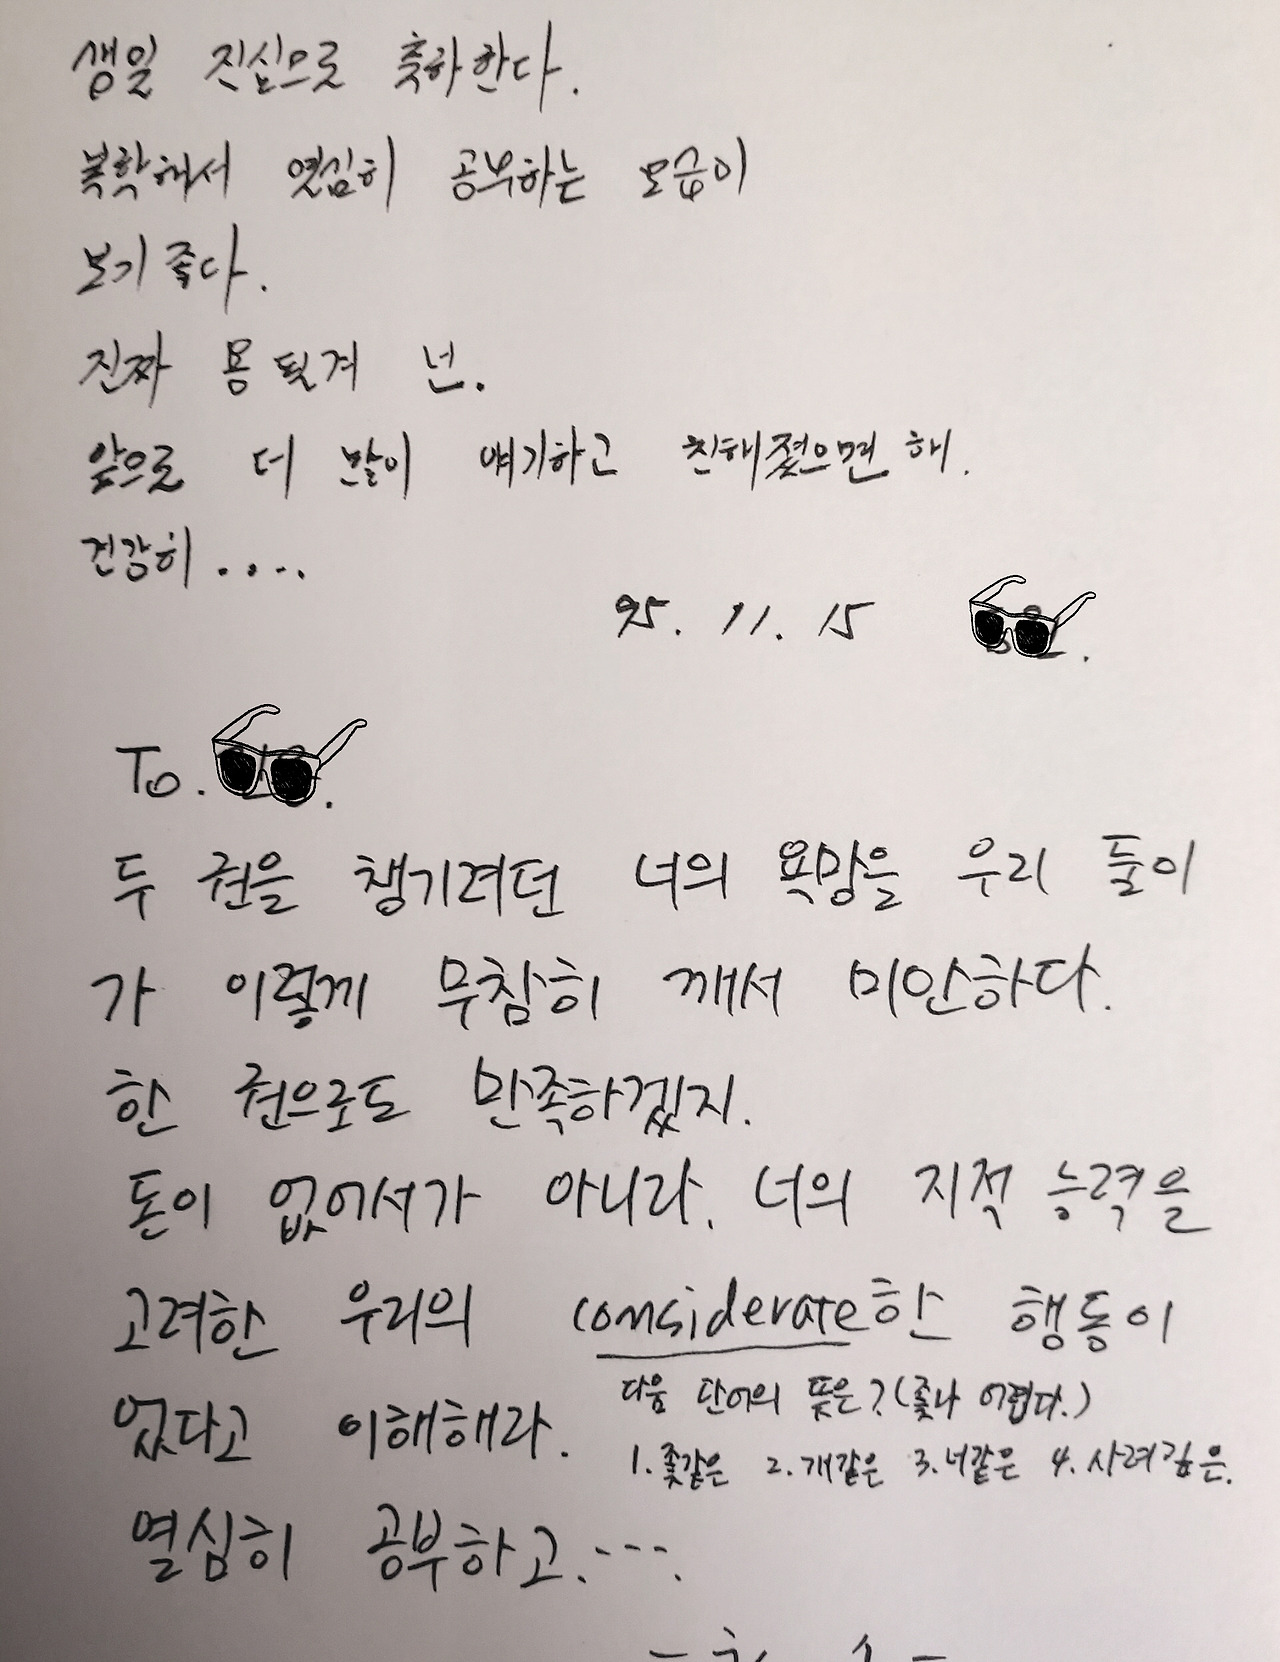 생일 진심으로 축하한다.
복학해서 열심히 공부하는 모습이
보기 좋다.
진짜 용 될게 넌.
앞으로 더 많이 얘기하고 친해졌으면 해.
건강히.....
95. 11. 15
To.
두 권을 챙기려던 너의 욕망을 우리 둘이
가 이렇게 무참히 깨서 미안하다.
한 권으로도 만족하겠지.
돈이 없어서가 아니라, 너의 지적 능력을
고려한 우리의 considerate한 행동이
었다고 이해해라.
다음 단어의 뜻은? (좆나 어렵다.)
1. 좆같은 2. 개같은 3. 너같은 4. 사려깊은.
열심히 공부하고....